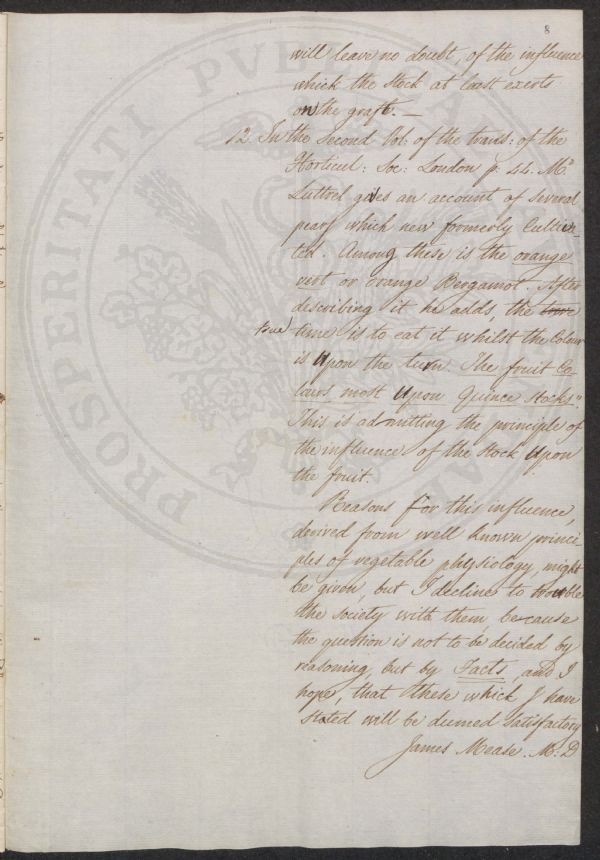 8
will leave no doubt, of the influence
which the Stock at least exerts
on the graft. —
12. In the Second Vol: of the trans: of the
Horticul: Soc: London p. 44. Mr
Luttrel gives an account of several
pears which were formerly Cultiva-
ted. Among these is the orange
vert or orange Bergamot. After
describing it he adds, the time
true time is to eat it whilst the Colour
is upon the turn. The fruit Co-
lours most upon Quince Stocks"
This is admitting the principle of
the influence of the Stock upon
the fruit.
Reasons for this influence,
derived from well known princi-
ples of vegetable physiology, might
be given, but I decline to trouble
the society with them, because
the question is not to be decided by
reasoning, but by Facts, and I
hope, that these which I have
stated will be deemed satisfactory
James Mease. M: D
PROSPERITATI PUBLI